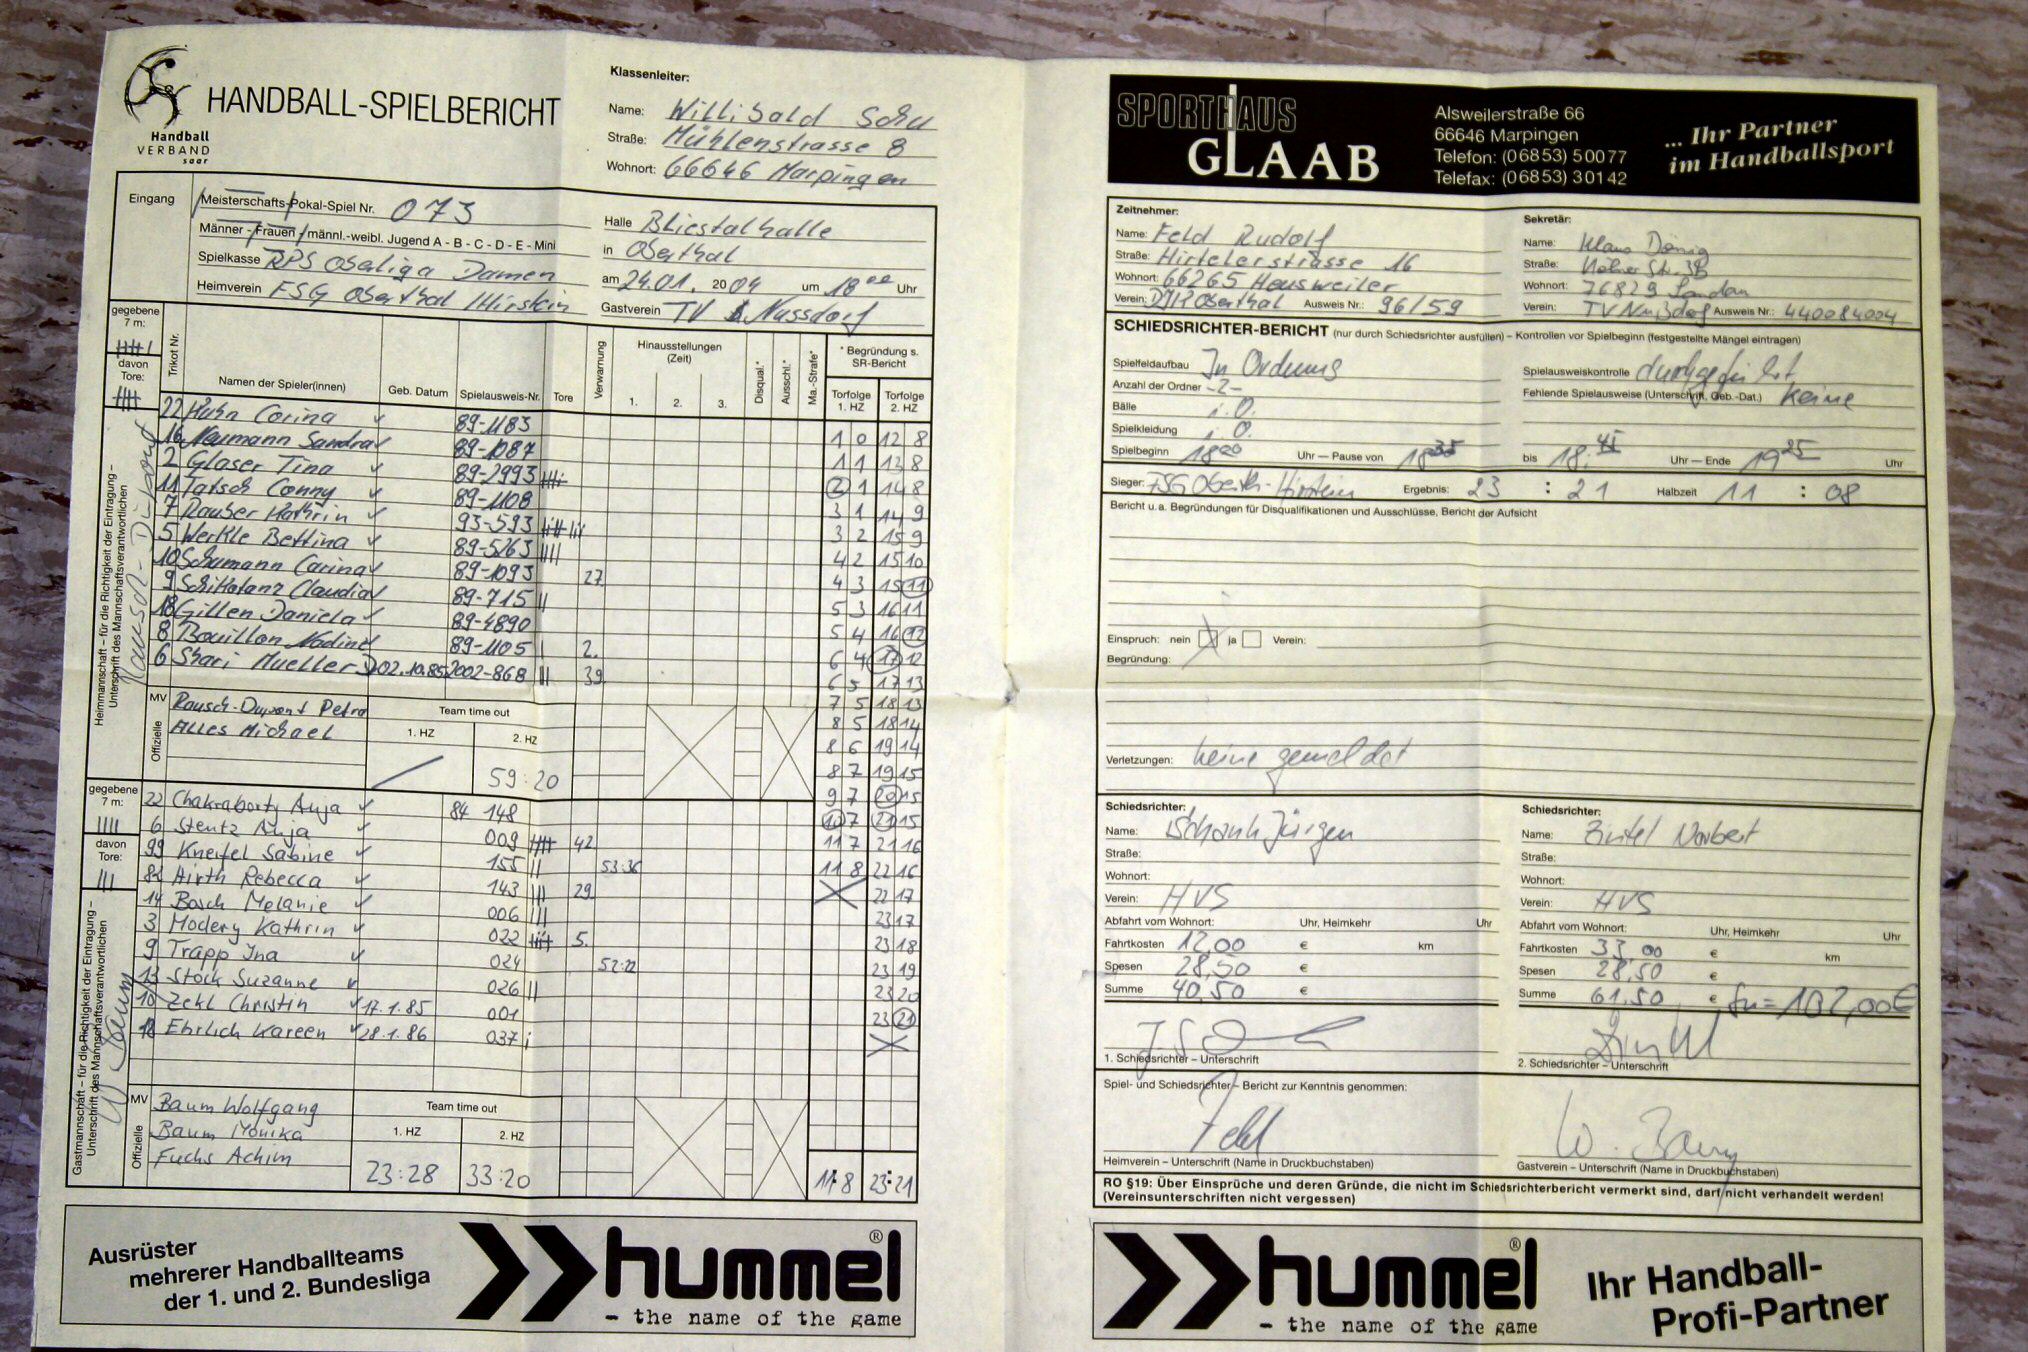 Handball
VERBAND
saar
HANDBALL-SPIELBERICHT
Klassenleiter:
Name: Willibald Schu
Straße: Mühlenstrasse 8
Wohnort: 66646 Marpingen
Eingang
Meisterschafts-Pokal-Spiel Nr. 073
Männer - Frauen - männl.-weibl. Jugend A - B - C - D - E - Mini
Spielkasse RPS Oberliga Damen
Heimverein FSG Oberthal / Hirstein
Halle Bliestalhalle
in Oberthal
am 24.01. 2004 um 18 00 Uhr
Gastverein TV Nussdorf
gegebene 7 m:
davon Tore:
Trikot Nr.
Namen der Spieler(innen)
Geb. Datum
Spielausweis-Nr.
Tore
Verwarnung
Hinausstellungen (Zeit)
1. 2. 3.
Disqual.*
Ausschl.*
Ma.-Strafe*
* Begründung s. SR-Bericht
Torfolge 1. HZ
Torfolge 2. HZ
22 Huhn Corina 89-1183
16 Neumann Sandra 89-1087
2 Glaser Tina 89-2993
11 Tatsch Conny 89-1108
7 Rauber Kathrin 93-593
5 Werkle Bettina 89-5263
10 Schumann Carina 89-1093 27.
9 Schikotanz Claudia 89-715
18 Gillen Daniela 89-4890
8 Bouillon Nadine 89-1105 2.
6 Shari Mueller 02.10.85 2002-868 39.
Heimmannschaft – für die Richtigkeit der Eintragung –
Unterschrift des Mannschaftsverantwortlichen
MV Rausch-Dupont Petra
Offizielle
Alles Michael
Team time out
1. HZ 2. HZ
59:20
1 0 12 8
1 1 13 8
2 1 14 8
3 1 14 9
3 2 15 9
4 2 15 10
4 3 15 11
5 3 16 11
5 4 16 12
6 4 17 12
6 5 17 13
7 5 18 13
8 5 18 14
8 6 19 14
8 7 19 15
9 7 20 15
10 7 21 15
11 7 21 16
11 8 22 16
22 17
23 17
23 18
23 19
23 20
23 21
gegebene 7 m:
davon Tore:
22 Chakraborty Anja 84 148
6 Stentz Anja 009 42
99 Kneifel Sabine 155 53:36
82 Hirth Rebecca 143 29.
14 Bosch Melanie 006
3 Modery Kathrin 022 5.
9 Trapp Ina 024 52:22
13 Stock Suzanne 026
10 Zekl Christin 17.1.85 001
12 Ehrlich Kareen 28.1.86 037
Gastmannschaft – für die Richtigkeit der Eintragung –
Unterschrift des Mannschaftsverantwortlichen
W. Baum
MV Baum Wolfgang
Offizielle
Baum Monika
Fuchs Achim
Team time out
1. HZ 2. HZ
23:28 33:20
11:8 23:21
Ausrüster
mehrerer Handballteams
der 1. und 2. Bundesliga
hummel®
– the name of the game
SPORTHAUS
GLAAB
Alsweilerstraße 66
66646 Marpingen
Telefon: (06853) 50077
Telefax: (06853) 30142
... Ihr Partner
im Handballsport
Zeitnehmer:
Name: Feld Rudolf
Straße: Hirtelerstrasse 16
Wohnort: 66265 Heusweiler
Verein: DJK Oberthal Ausweis Nr.: 96/59
Sekretär:
Name: Klaus
Straße:
Wohnort: 76829 Landau
Verein: TV Nußdorf Ausweis Nr.: 440084004
SCHIEDSRICHTER-BERICHT (nur durch Schiedsrichter ausfüllen) – Kontrollen vor Spielbeginn (festgestellte Mängel eintragen)
Spielfeldaufbau In Ordnung
Spielausweiskontrolle durchgeführt
Anzahl der Ordner -2-
Fehlende Spielausweise (Unterschrift, Geb.-Dat.) keine
Bälle i.O.
Spielkleidung i.O.
Spielbeginn 18 00 Uhr — Pause von 18 35 bis 18.45 Uhr — Ende 19 25 Uhr
Sieger: FSG Oberth.-Hirstein Ergebnis: 23 : 21 Halbzeit 11 : 08
Bericht u.a. Begründungen für Disqualifikationen und Ausschlüsse, Bericht der Aufsicht
Einspruch: nein ja Verein:
Begründung:
Verletzungen: keine gemeldet
Schiedsrichter:
Name: Schank Jürgen
Straße:
Wohnort:
Verein: HVS
Abfahrt vom Wohnort: Uhr, Heimkehr Uhr
Fahrtkosten 12,00 € km
Spesen 28,50 €
Summe 40,50 €
1. Schiedsrichter – Unterschrift
Schiedsrichter:
Name: Zintel Norbert
Straße:
Wohnort:
Verein: HVS
Abfahrt vom Wohnort: Uhr, Heimkehr Uhr
Fahrtkosten 33,00 € km
Spesen 28,50 €
Summe 61,50 € = 102,00€
2. Schiedsrichter – Unterschrift
Spiel- und Schiedsrichter – Bericht zur Kenntnis genommen:
Feld
W. Baum
Heimverein – Unterschrift (Name in Druckbuchstaben)
Gastverein – Unterschrift (Name in Druckbuchstaben)
RO §19: Über Einsprüche und deren Gründe, die nicht im Schiedsrichterbericht vermerkt sind, darf nicht verhandelt werden!
(Vereinsunterschriften nicht vergessen)
hummel®
– the name of the game
Ihr Handball-
Profi-Partner